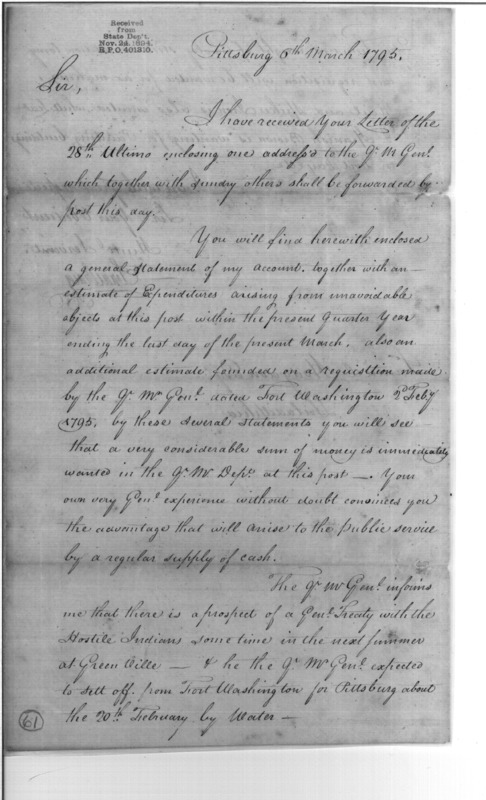 Received
from
State Dep't.
Nov. 24, 1894.
R.P.O. 401310.
Pittsburg 6th March 1795.
Sir,
I have received Your Letter of the
28th Ultimo enclosing one address'd to the Qr. M Genl.
which together with sundry others shall be forwarded by
post this day.
You will find herewith enclosed
a general statement of my account. together with an
estimate of Expenditures arising from unavoidable
objects at this post within the present Quarter Year
ending the last day of the present March. also an
additional estimate founded on a requisition made
by the Qr. Mr Genl. dated Fort Washington 2d Feby
1795. by these several statements you will see
that a very considerable sum of money is immediately
wanted in the Qr. Mr Depr. at this post —. Your
own very Genl. experience without doubt convinces you
the advantage that will arise to the public service
by a regular supply of cash.
The Qr Mr Genl. informs
me that there is a prospect of a Genl. Treaty with the
Hostile Indians some time in the next summer
at Green Ville — & he the Qr Mr Genl. expected
to sett off from Fort Washington for Pittsburg about
the 20th February by Water —
61